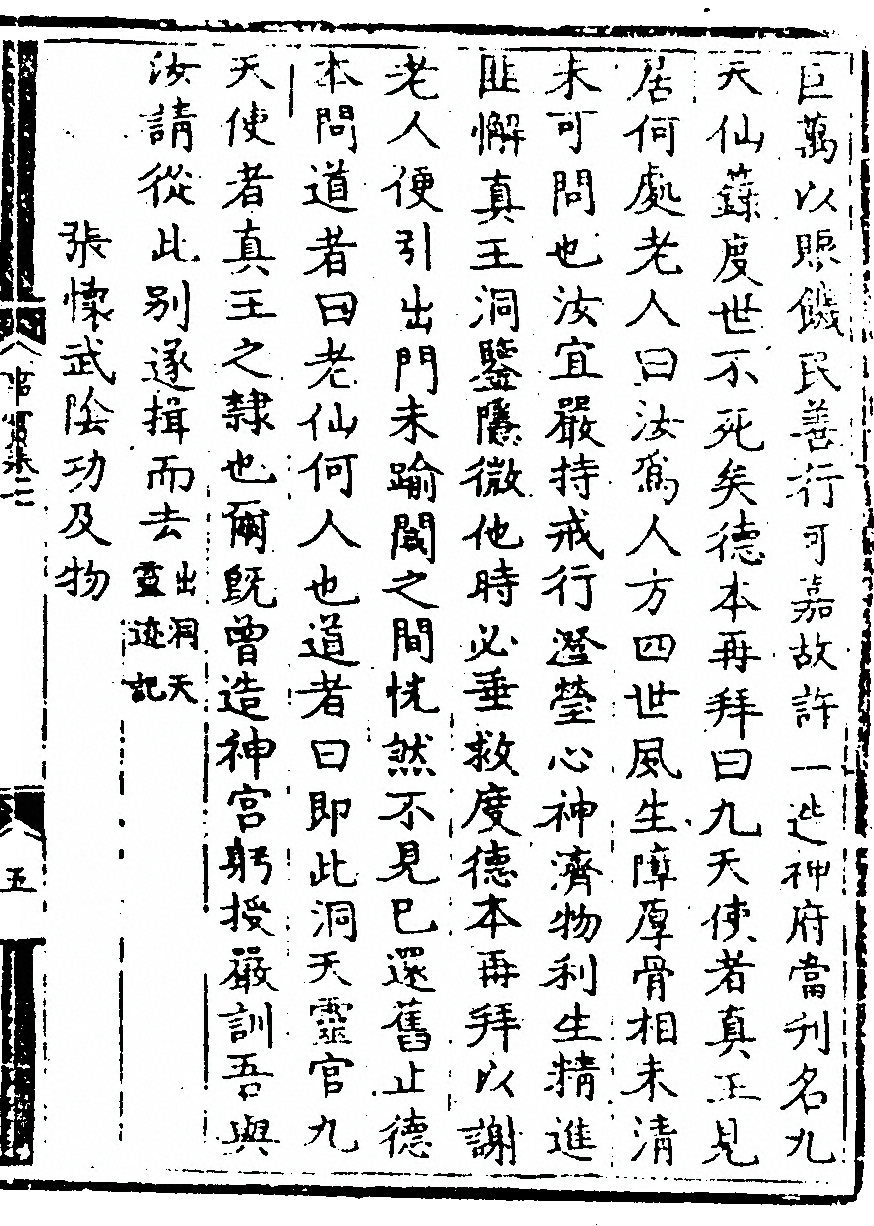 巨萬以賑饑民善行可嘉故許一造神府當刋名九
天仙籙度世不死矣德本再拜曰九天使者真王見
居何處老人曰汝爲人方四世風生障厚骨相未清
未可問也汝宜嚴持戒行澄瑩心神濟物利生精進
匪懈真王洞鑒隱微他時必垂救度德本再拜以謝
老人便引出門未踰閾之間恍然不見已還舊止德
本問道者曰老仙何人也道者曰即此洞天靈官九
天使者真王之隸也爾既曾造神宮躬授嚴訓吾與
汝請從此別遂揖而去出洞天靈迹記
張懷武陰功及物
五